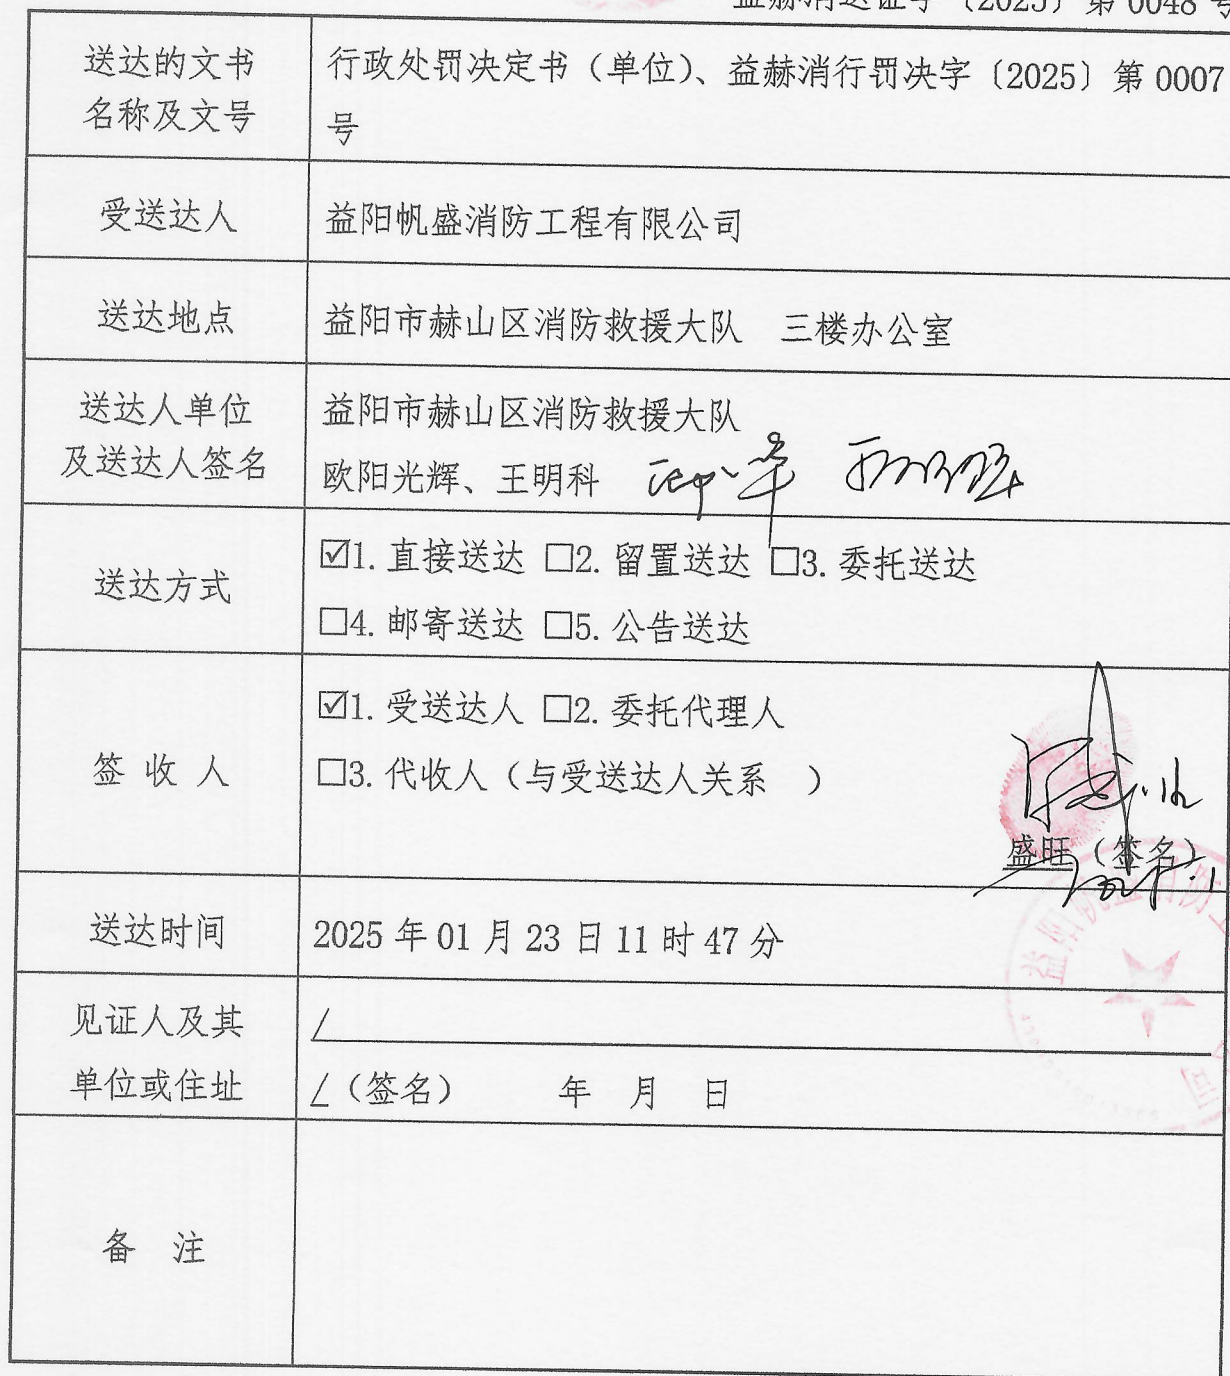 益赫消送证字〔2025〕第 0048 号
送达的文书
名称及文号
行政处罚决定书（单位）、益赫消行罚决字〔2025〕第 0007
号
受送达人
益阳帆盛消防工程有限公司
送达地点
益阳市赫山区消防救援大队 三楼办公室
送达人单位
及送达人签名
益阳市赫山区消防救援大队
欧阳光辉、王明科
送达方式
☑1. 直接送达 □2. 留置送达 □3. 委托送达
□4. 邮寄送达 □5. 公告送达
签 收 人
☑1. 受送达人 □2. 委托代理人
□3. 代收人（与受送达人关系 ）
盛旺（签名）
送达时间
2025 年 01 月 23 日 11 时 47 分
见证人及其
单位或住址
/
/（签名） 年 月 日
备 注